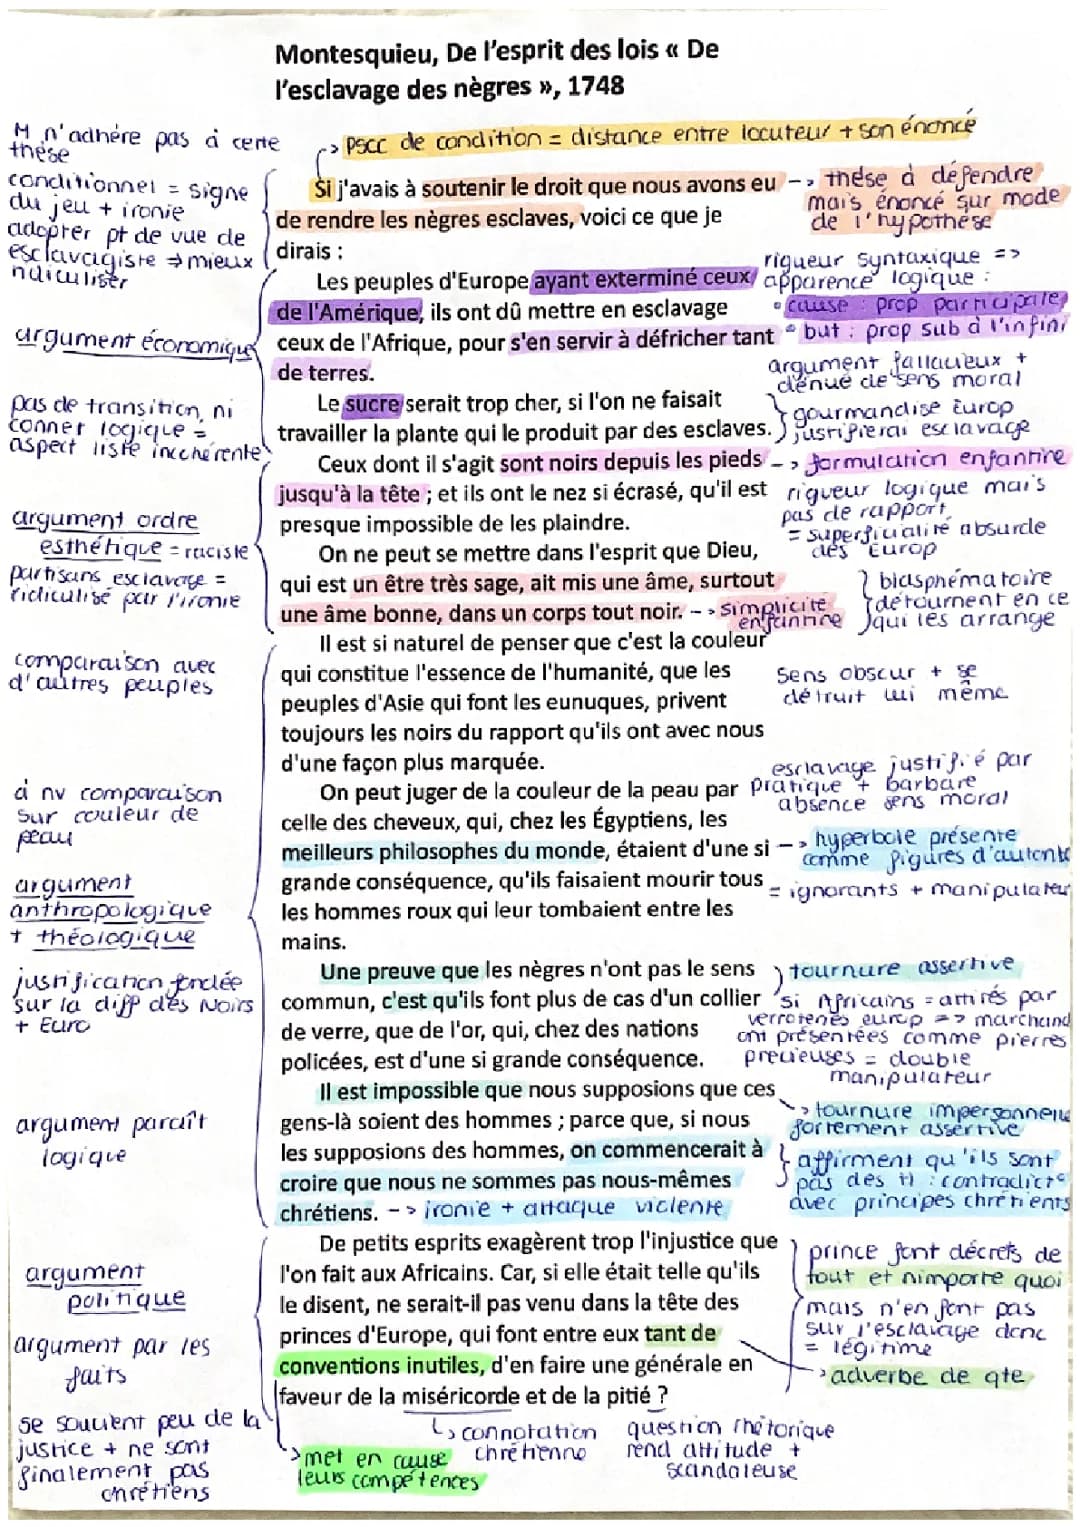 Montesquieu, De l'esprit des lois « De
l'esclavage des nègres », 1748
M n'adhère pas à cette
thèse
-> PSCC de condition = distance entre locuteur + son énoncé
conditionnel = signe
du jeu + ironie
adopter pt de vue de
esclavagiste => mieux
ridiculiser
Si j'avais à soutenir le droit que nous avons eu
de rendre les nègres esclaves, voici ce que je
dirais :
-> thèse à défendre
mais énoncé sur mode
de l'hypothèse
rigueur syntaxique =>
apparence logique :
• cause : prop participale
• but : prop sub à l'infini
Les peuples d'Europe ayant exterminé ceux
de l'Amérique, ils ont dû mettre en esclavage
ceux de l'Afrique, pour s'en servir à défricher tant
de terres.
argument économique
argument fallacieux +
dénué de sens moral
pas de transition, ni
conner logique =
aspect liste incohérente
Le sucre serait trop cher, si l'on ne faisait
travailler la plante qui le produit par des esclaves.
gourmandise Europ
justifierai esclavage
Ceux dont il s'agit sont noirs depuis les pieds
jusqu'à la tête ; et ils ont le nez si écrasé, qu'il est
presque impossible de les plaindre.
-> formulation enfantine
rigueur logique mais
pas de rapport
= superficialité absurde
des Europ
argument ordre
esthétique = raciste
partisans esclavage =
ridiculisé par l'ironie
On ne peut se mettre dans l'esprit que Dieu,
qui est un être très sage, ait mis une âme, surtout
une âme bonne, dans un corps tout noir. -> simplicité
enfantine
blasphématoire
détournent en ce
qui les arrange
comparaison avec
d'autres peuples
Il est si naturel de penser que c'est la couleur
qui constitue l'essence de l'humanité, que les
peuples d'Asie qui font les eunuques, privent
toujours les noirs du rapport qu'ils ont avec nous
d'une façon plus marquée.
sens obscur + se
détruit lui même
esclavage justifié par
pratique + barbare
absence sens moral
à nv comparaison
sur couleur de
peau
On peut juger de la couleur de la peau par
celle des cheveux, qui, chez les Égyptiens, les
meilleurs philosophes du monde, étaient d'une si
grande conséquence, qu'ils faisaient mourir tous
les hommes roux qui leur tombaient entre les
mains.
-> hyperbole présente
comme figures d'autorité
= ignorants + manipulateur
argument
anthropologique
+ théologique
justification fondée
sur la diff des Noirs
+ Euro
Une preuve que les nègres n'ont pas le sens
commun, c'est qu'ils font plus de cas d'un collier
de verre, que de l'or, qui, chez des nations
policées, est d'une si grande conséquence.
tournure assertive
si Africains = attirés par
verroteries europ => marchand
ont présentées comme pierres
précieuses = double
manipulateur
argument paraît
logique
Il est impossible que nous supposions que ces
gens-là soient des hommes ; parce que, si nous
les supposions des hommes, on commencerait à
croire que nous ne sommes pas nous-mêmes
chrétiens. -> ironie + attaque violente
-> tournure impersonnelle
fortement assertive
affirment qu'ils sont
pas des H : contradict°
avec principes chrétients
argument
politique
argument par les
faits
De petits esprits exagèrent trop l'injustice que
l'on fait aux Africains. Car, si elle était telle qu'ils
le disent, ne serait-il pas venu dans la tête des
princes d'Europe, qui font entre eux tant de
conventions inutiles, d'en faire une générale en
faveur de la miséricorde et de la pitié ?
prince font décrets de
tout et nimporte quoi
mais n'en font pas
sur l'esclavage donc
= légitime
-> adverbe de qte
se soucient peu de la
justice + ne sont
finalement pas
chrétiens
-> met en cause
leurs compétences
connotation
chrétienne
question rhétorique
rend attitude +
scandaleuse